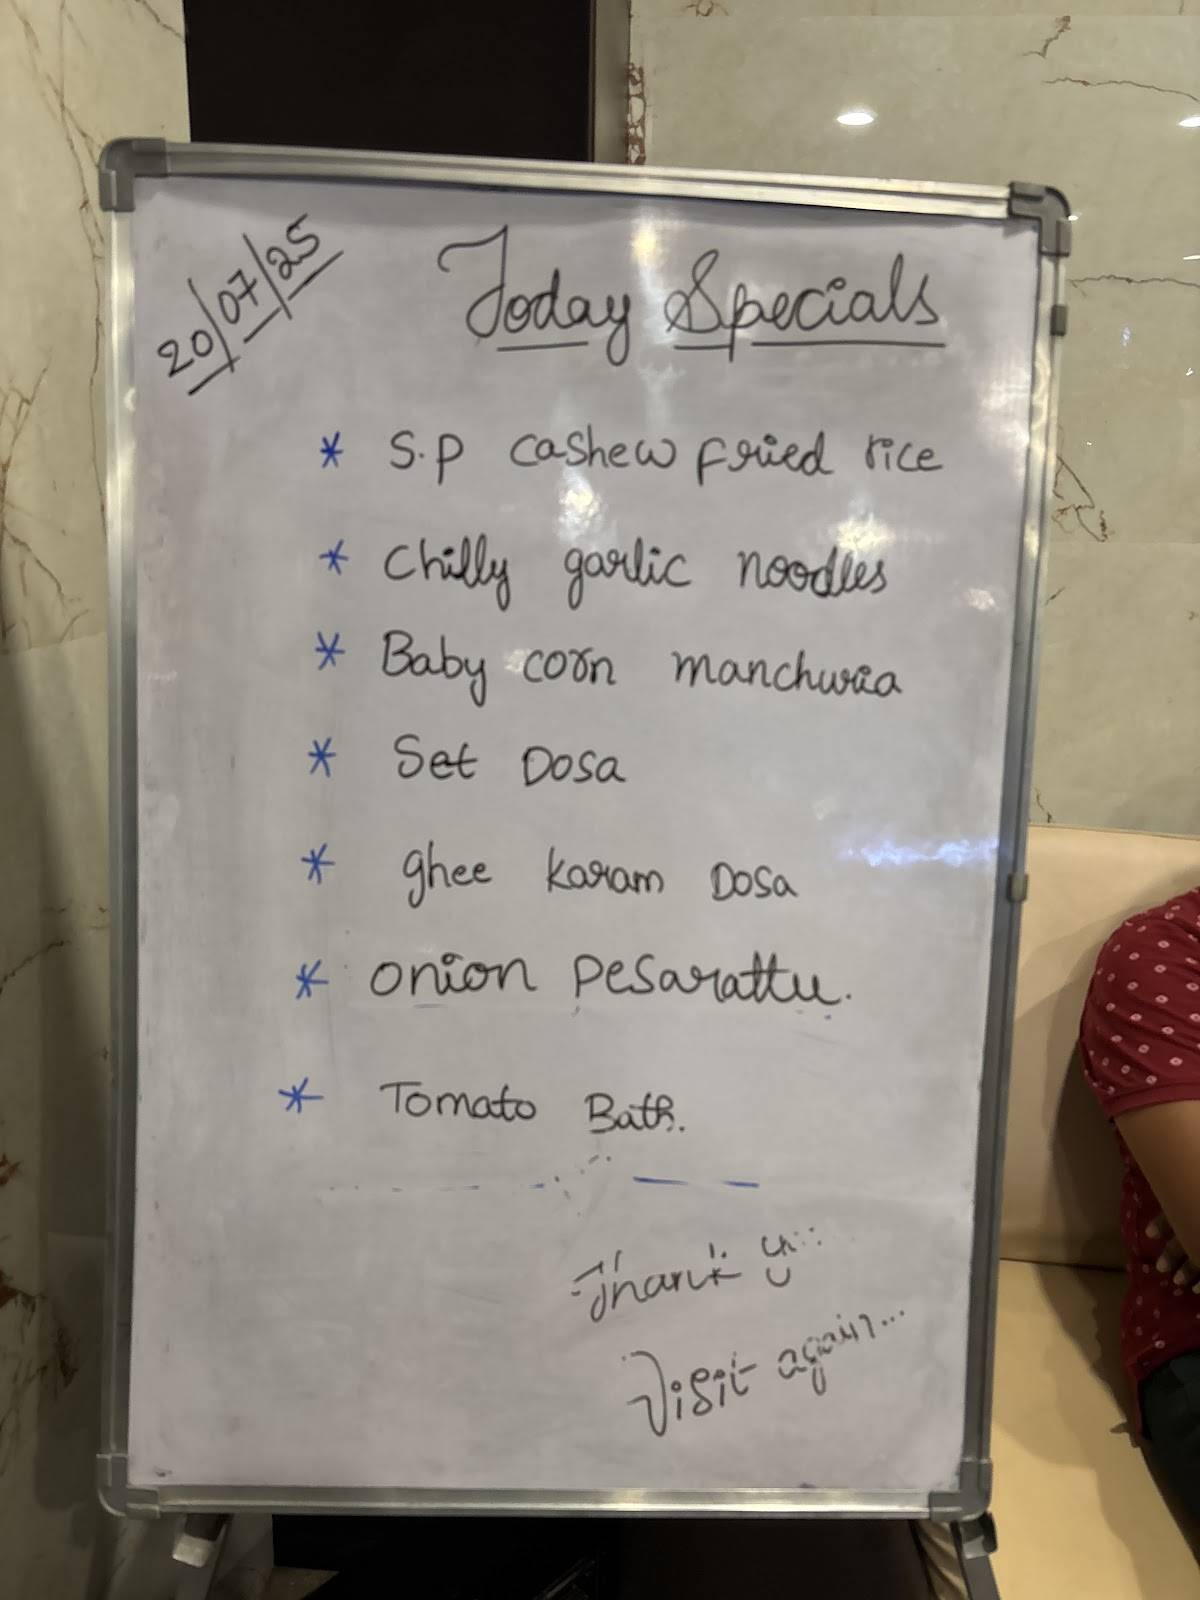 20/07/25
Today Specials
* S.P Cashew fried rice
* Chilly garlic noodles
* Baby corn manchuria
* Set Dosa
* ghee karam Dosa
* Onion Pesarattu.
* Tomato Bath.
Thank
Visit again...